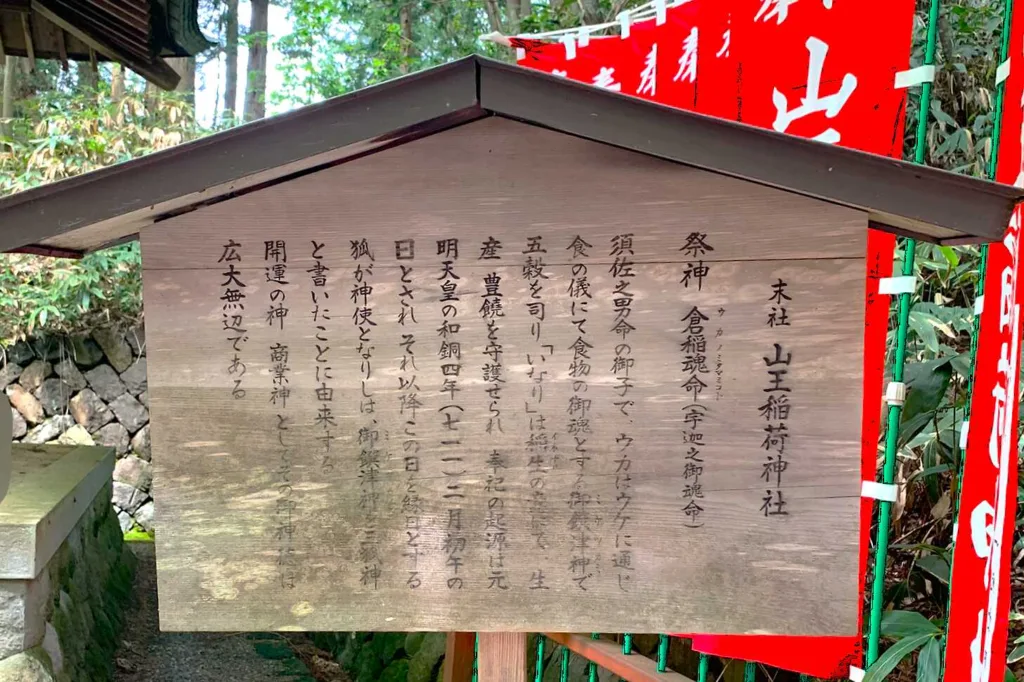 末社 山王稲荷神社
祭神 倉稲魂命(宇迦之御魂命)
ウカノミタマミコト
須佐之男命の御子で、ウカはウケに通じ
食の儀にて食物の御魂とする御饌津神で
ミケツカミ
五穀を司り「いなり」は稲生の意にて、生
産 豊饒を守護せられ 奉祀の起源は元
明天皇の和銅四年(七一一)二月初午の
日とされ それ以降この日を縁日とする
狐が神使となりしは、御饌津神を三狐神
と書いたことに由来する
開運の神 商業神としてその御神徳は
広大無辺である
奉
奉
山